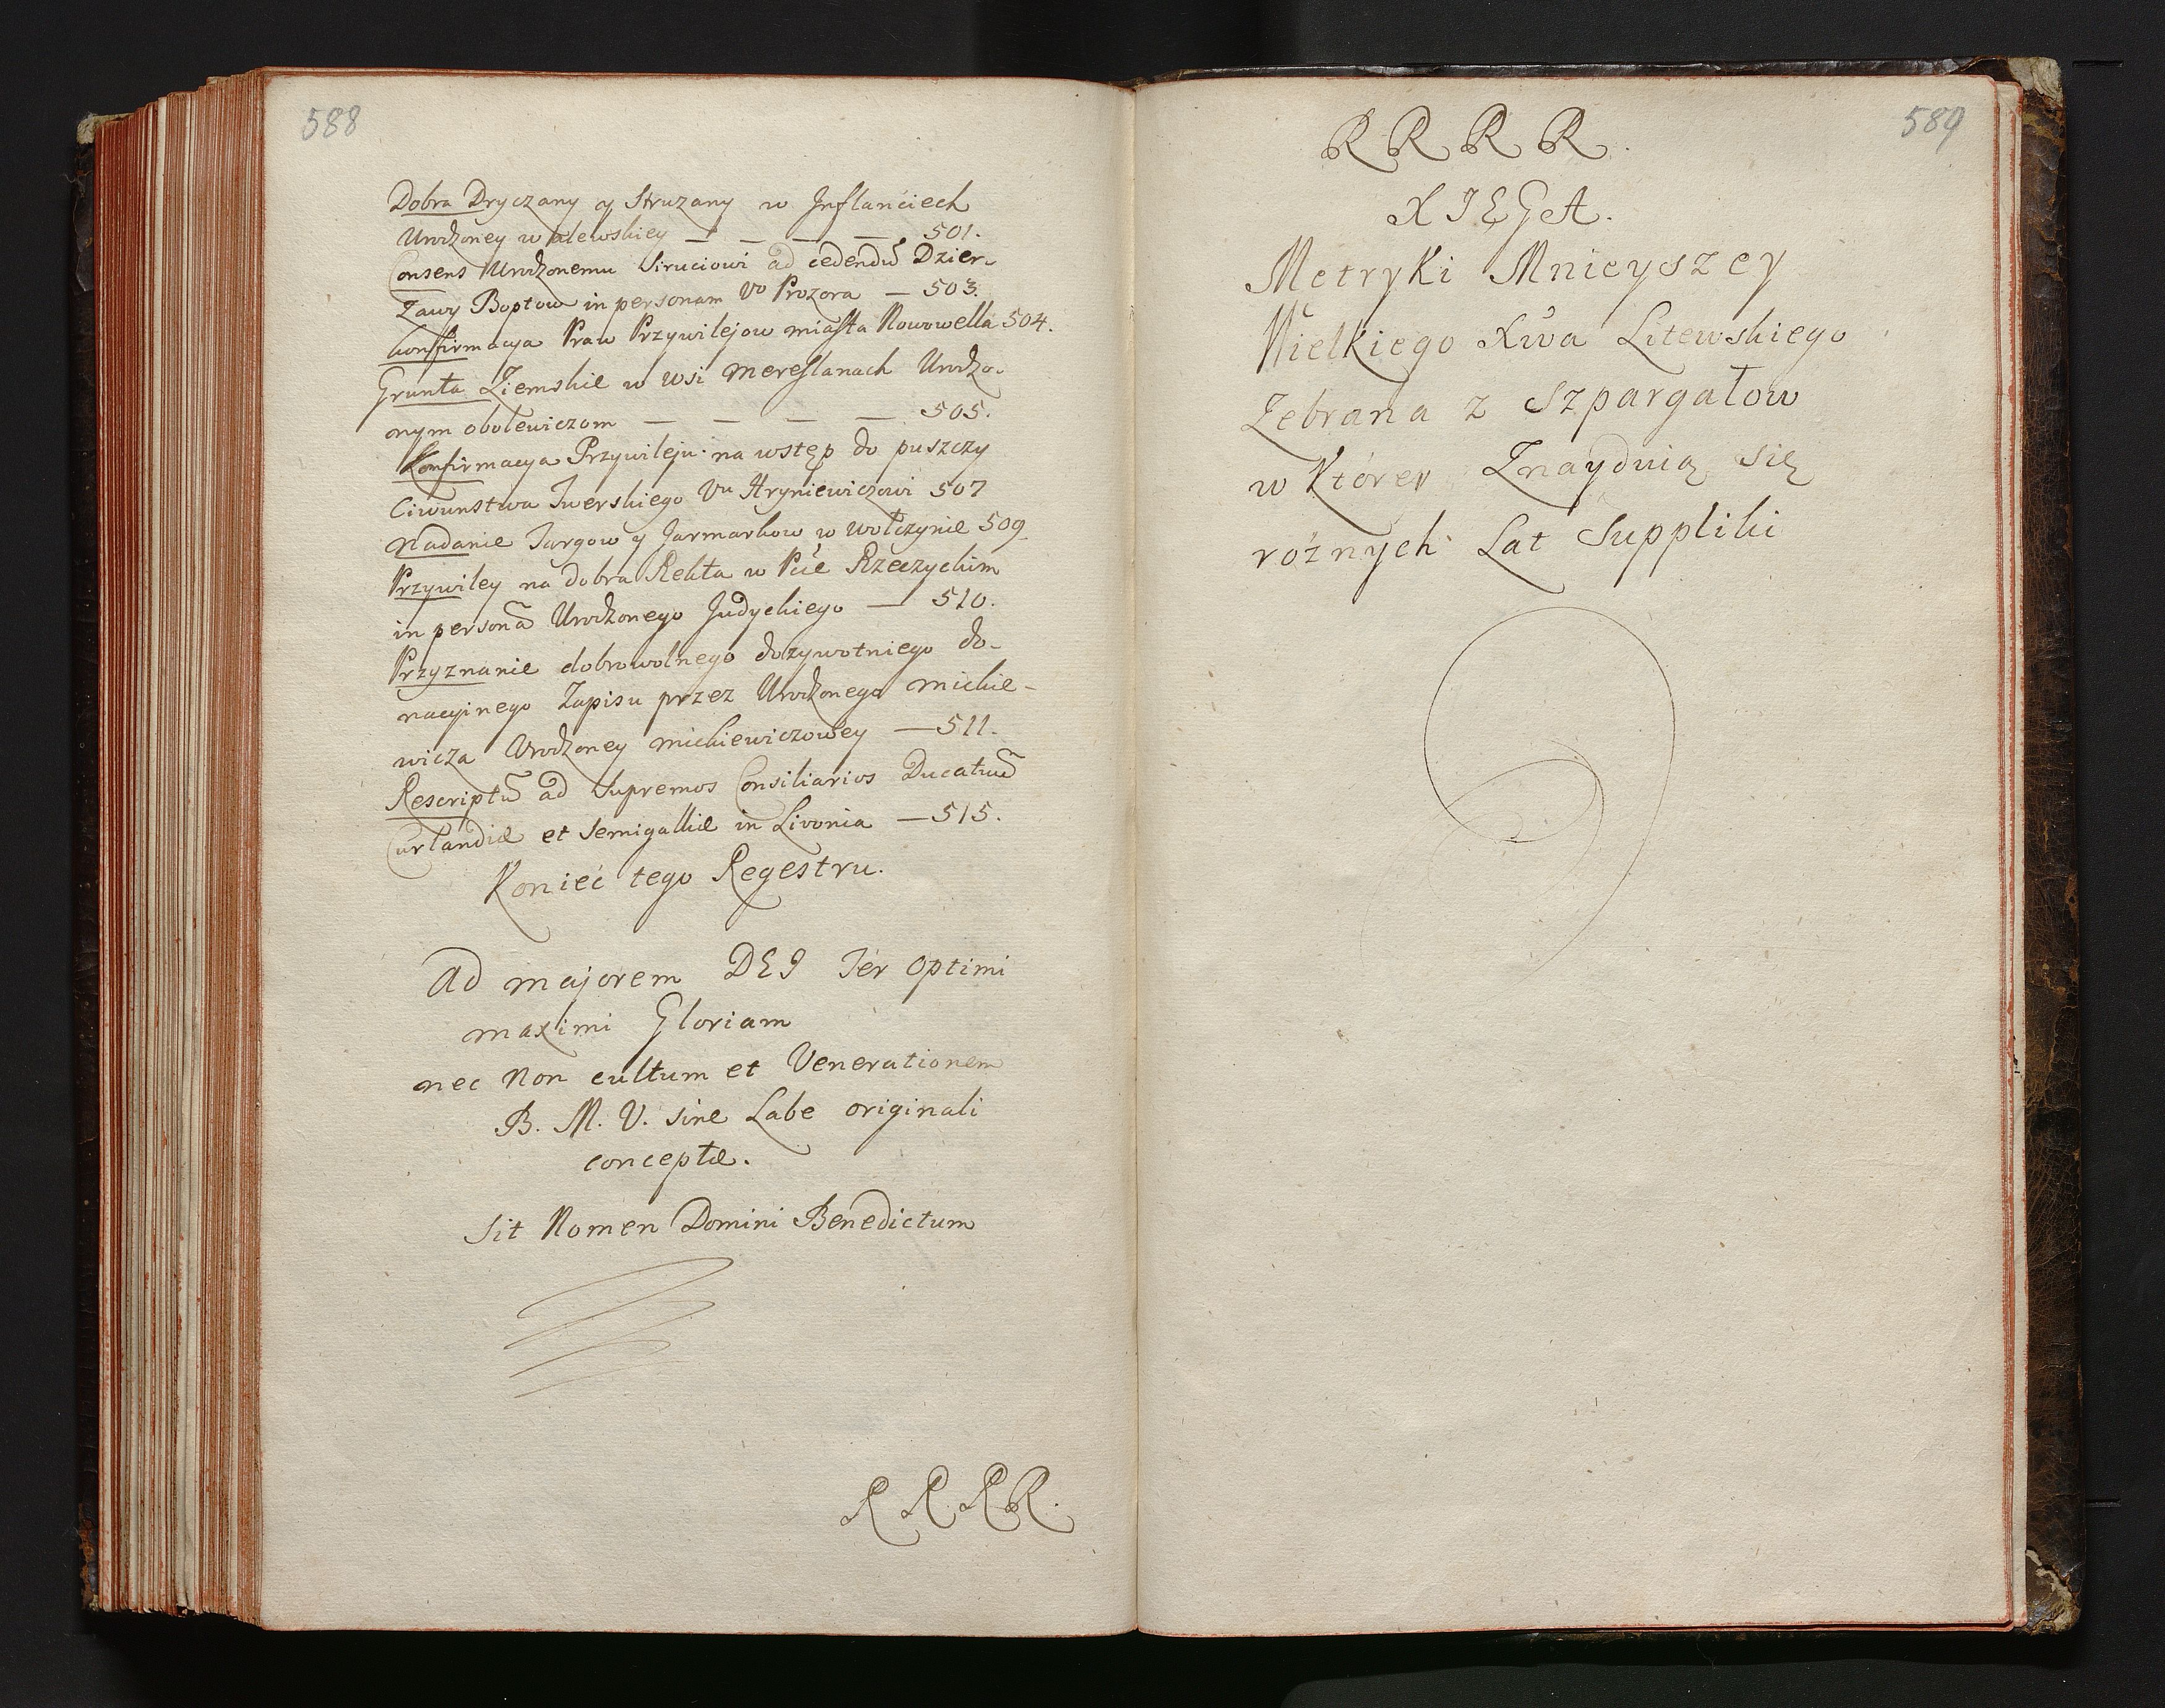 588
Dobra Dryczany y Struzany w Jnflanciech
Urodzoney walewskiey — — — — 501.
Consens Urodzonemu Siruciowi ad cedendũ Dzier-
żawy Boptow in personam Uo Prozora — 503.
konfirmacya Praw Przywilejow miasta Nowowella 504.
Grunta Ziemskie w wsi Mereszlanach Urodzo-
nym obolewiczom — — — — 505.
Konfirmacya Przywileju na wstęp do puszczy
Ciwunstwa Twerskiego Uu Hryniewiczowi 507
Nadanie Targow y Jarmarkow w Wołczynie 509
Przywiley na dobra Rekta w Pcie Rzeczyckim
in personã Urodzonego Judyckiego — 510.
Przyznanie dobrowolnego dozywotniego do-
nacyjnego Zapisu przez Urodzonego mickie-
wicza Urodzoney mickiewiczowey — 511.
Rescriptũ ad Supremos Consiliarios Ducatuũ
Curlandiæ et Semigalliæ in Livonia — 515.
Konieć tego Regestru.
Ad majorem DEJ Ter Optimi
maximi Gloriam
nec Non cultum et Venerationem
B. M. V. sine Labe originali
conceptæ.
Sit Nomen Domini Benedictum
R R R R.
589
R R R R.
XIĘGA.
Metryki Mnieyszey
Wielkiego Xwa Litewskiego
Zebrana z Szpargałow
w Ktorey Znayduią się
rożnych Lat Suppliki